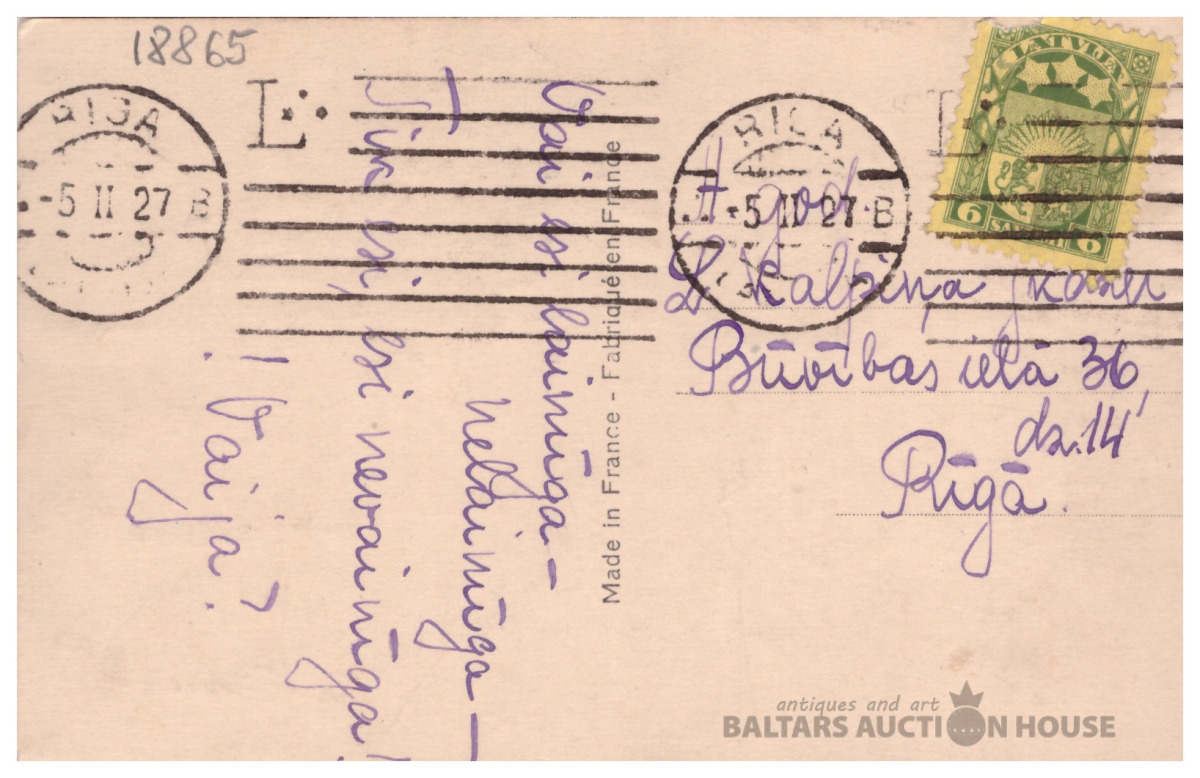 18865
RIGA
-5 II 27 B
L
RIGA
-5 II 27 B
L
LATVIJA
6 SANTIMI 6
Vai esi laimīga –
nelaimīga –
Tik esi, esi nevainīga!
! Vai ja?
Made in France - Fabriqué en France
god.
L Kalpiņa jkdzei
Būvības ielā 36,
dz. 14
Rīgā.
antiques and art
BALTARS AUCTION HOUSE